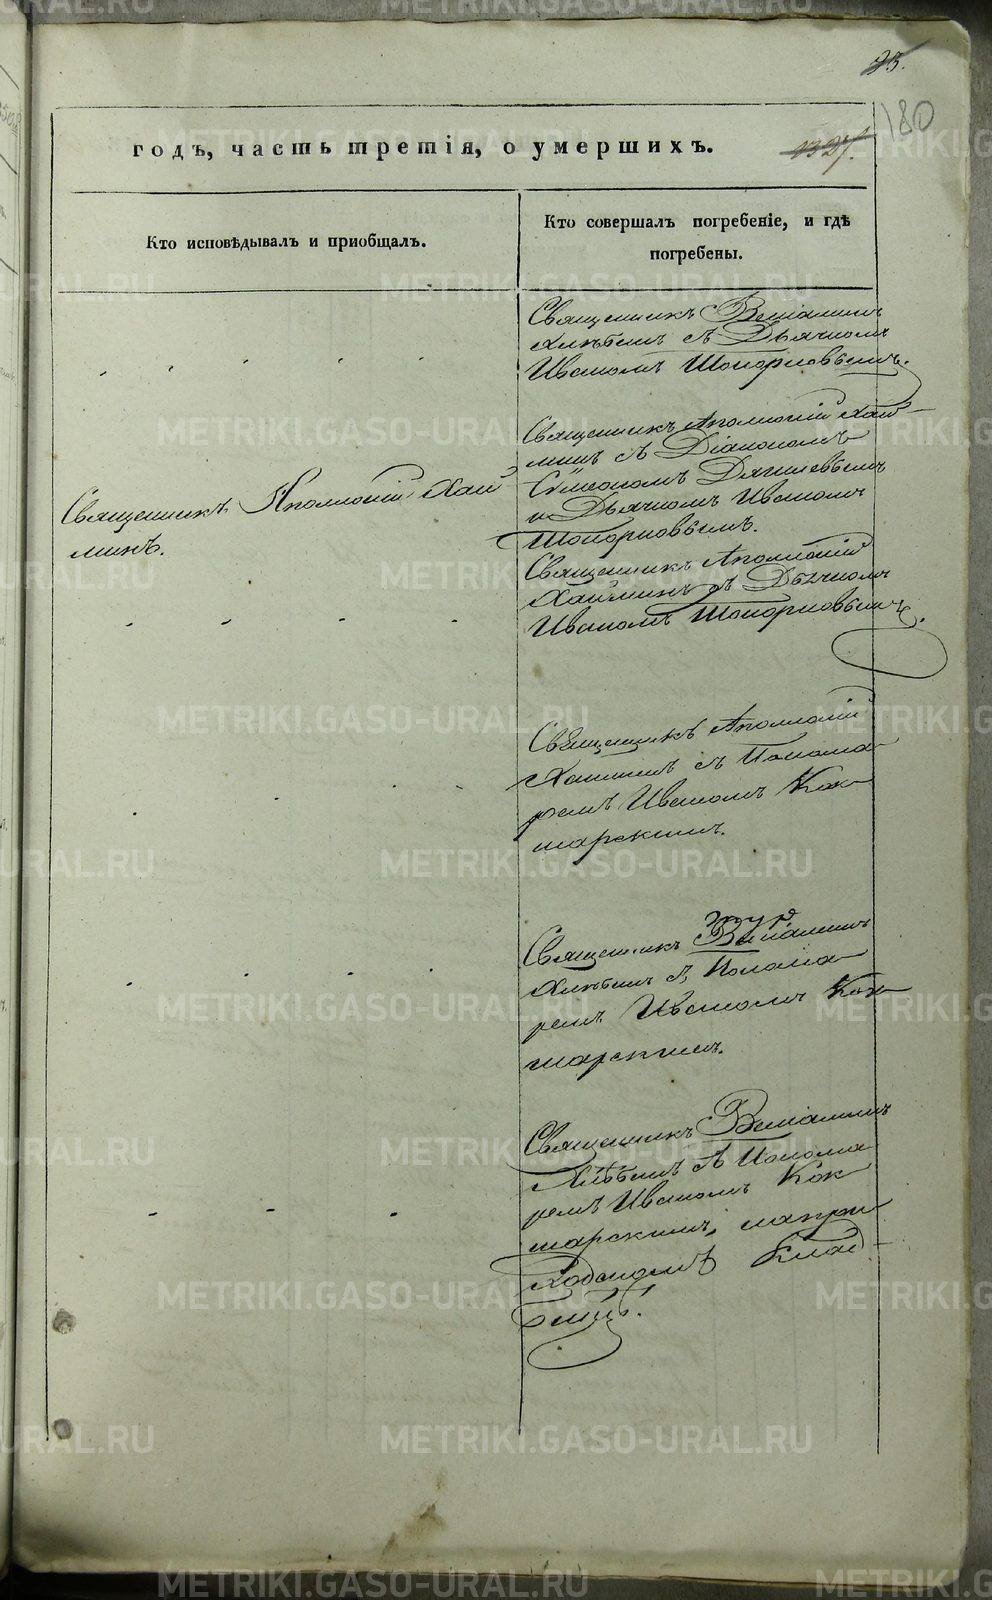 25.
180
годъ, часть третія, о умершихъ.
1327.
Кто исповѣдывалъ и пріобщалъ.
Кто совершалъ погребеніе, и гдѣ
погребены.
Священникъ Веніаминъ
Хлѣбинъ съ Дьячкомъ
Иваномъ Топорковымъ.
Священникъ Аполлоній Хай
минъ съ Діакономъ
Сѵмеономъ Дягилевымъ
и Дьячкомъ Иваномъ
Топорковымъ.
Священникъ Аполлоній Хай
минъ.
Священникъ Аполлоній
Хайминъ съ Дьячкомъ
Иваномъ Топорковымъ.
Священникъ Аполлоній
Хайминъ съ Понома
ремъ Иваномъ Кок
шарскимъ.
Священникъ Веніаминъ
Хлѣбинъ съ Понома
ремъ Иваномъ Кок
шарскимъ.
Священникъ Веніаминъ
Хлѣбинъ съ Понома
ремъ Иваномъ Кок
шарскимъ, на при
ходскомъ Клад
бищѣ.
METRIKI.GASO-URAL.RU